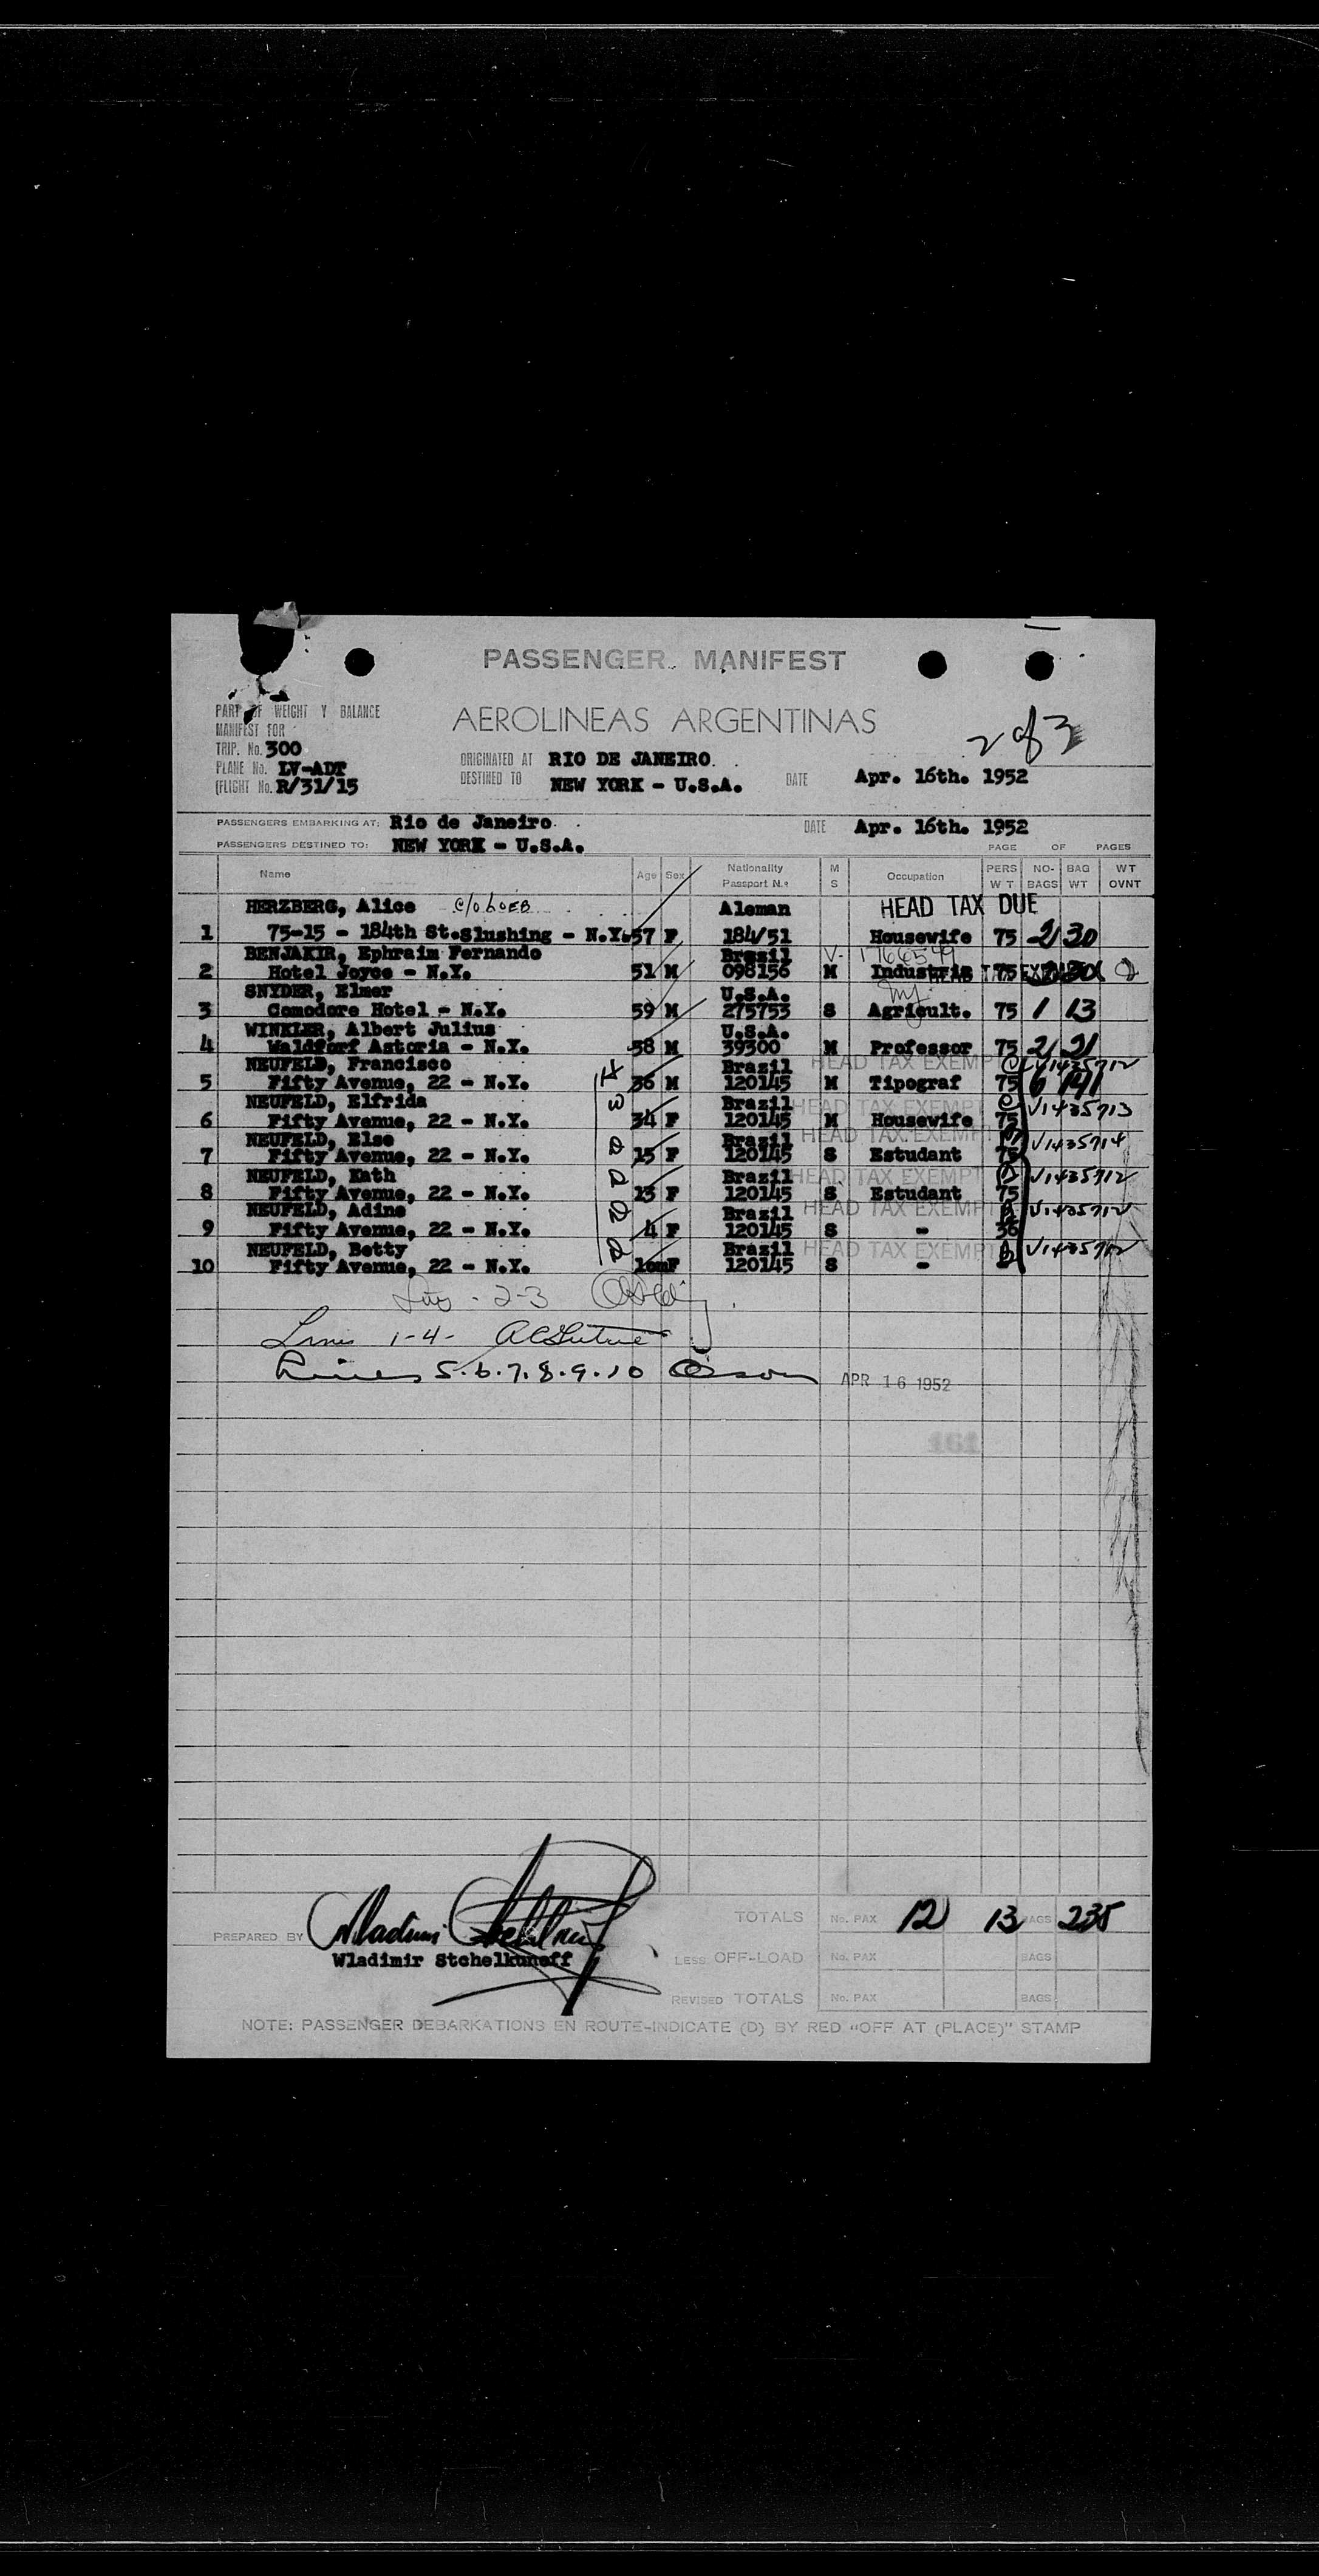 PASSENGER MANIFEST
PART OF WEIGHT Y BALANCE
MANIFEST FOR
AEROLINEAS ARGENTINAS
2 of 3
TRIP. No. 300
PLANE No. LV-ADT
(FLIGHT No. R/31/15
ORIGINATED AT RIO DE JANEIRO.
DESTINED TO NEW YORK - U.S.A.
DATE Apr. 16th. 1952
PASSENGERS EMBARKING AT: Rio de Janeiro
DATE Apr. 16th. 1952
PASSENGERS DESTINED TO: NEW YORK - U.S.A.
PAGE OF PAGES
Name Age Sex Nationality Passport N.º M S Occupation PERS W T NO- BAGS BAG WT WT OVNT
HERZBERG, Alice c/o Aleman HEAD TAX DUE
1 75-15 - 184th St.Slushing - N.Y. 57 F 184/51 Housewife 75 2 30
BENJAKIR, Ephraim Fernando Brasil V- 1766549
2 Hotel Joyce - N.Y. 51 M 098156 M 75 30
SNYDER, Elmer U.S.A.
3 Comodore Hotel - N.Y. 59 M 275753 S Agricult. 75 1 13
WINKLER, Albert Julius U.S.A.
4 Waldforf Astoria - N.Y. 58 M 39300 M Professor 75 2 21
HEAD TAX EXEMPT
NEUFELD, Francisco Brazil V1435712
5 Fifty Avenue, 22 - N.Y. 36 M 120145 M Tipograf 75 6 141
NEUFELD, Elfrida Brazil HEAD TAX EXEMPT V1435713
6 Fifty Avenue, 22 - N.Y. 34 F 120145 M Housewife 75
NEUFELD, Else Brazil HEAD TAX EXEMPT V1435714
7 Fifty Avenue, 22 - N.Y. 15 F 120145 S Estudant 75
NEUFELD, Kath Brazil HEAD TAX EXEMPT V1435712
8 Fifty Avenue, 22 - N.Y. 13 F 120145 S Estudant 75
NEUFELD, Adine Brazil HEAD TAX EXEMPT V1435712
9 Fifty Avenue, 22 - N.Y. 4 F 120145 S - 36
NEUFELD, Betty Brazil HEAD TAX EXEMPT V1435712
10 Fifty Avenue, 22 - N.Y. 10m F 120145 S -
2-3
Lines 1-4-
Lines 5.6.7.8.9.10
APR 16 1952
161
TOTALS No. PAX 12 13 BAGS 235
PREPARED BY
Wladimir Stchelkunoff
LESS OFF-LOAD No. PAX BAGS
REVISED TOTALS No. PAX BAGS
NOTE: PASSENGER DEBARKATIONS EN ROUTE-INDICATE (D) BY RED "OFF AT (PLACE)" STAMP